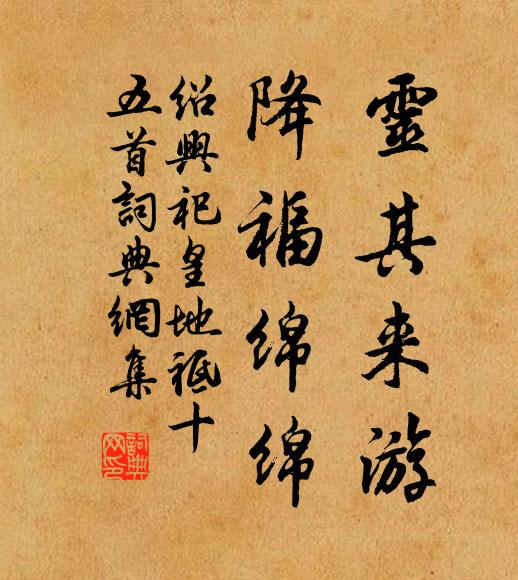 靈其来游
降福綿綿
紹興祀皇地祗十
五首詞典網集
詞典网印